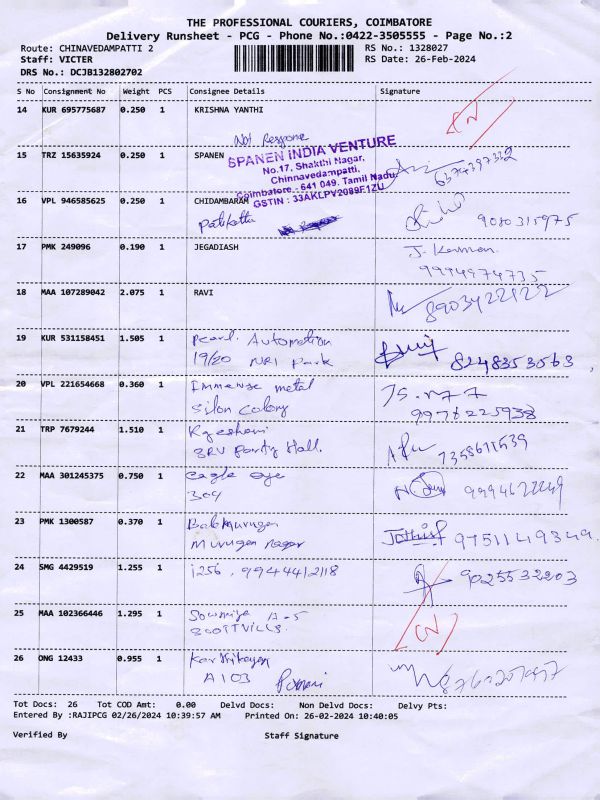 THE PROFESSIONAL COURIERS, COIMBATORE
Delivery Runsheet - PCG - Phone No.:0422-3505555 - Page No.:2
Route: CHINAVEDAMPATTI 2 RS No.: 1328027
Staff: VICTER RS Date: 26-Feb-2024
DRS No.: DCJB132802702
S No Consignment No Weight PCS Consignee Details Signature
14 KUR 695775687 0.250 1 KRISHNA YANTHI
Not Respone
15 TRZ 15635924 0.250 1 SPANEN
SPANEN INDIA VENTURE
No.17, Shakthi Nagar,
Chinnavedampatti,
Coimbatore - 641 049. Tamil Nadu
GSTIN : 33AKLPV2089F1ZU
6374397332
16 VPL 946585625 0.250 1 CHIDAMBARAM
9080315975
17 PMK 249096 0.190 1 JEGADIASH
J. Kannan
9994974735
18 MAA 107289042 2.075 1 RAVI
8903422122
19 KUR 531158451 1.505 1 Pearl Automation
19/20 NRI Park 8248353563
20 VPL 221654668 0.360 1 Immense metal
Silon Colony
9976225938
21 TRP 7679244 1.510 1
SRV Party Hall. 7358611539
22 MAA 301245375 0.750 1 Eagle eye
304 9994622249
23 PMK 1300587 0.370 1 BalaMurugan
Murugan Nagar 9751149349
24 SMG 4429519 1.255 1 i256, 9944412118 9025532203
25 MAA 102366446 1.295 1 Sowmiya A-5
26 ONG 12433 0.955 1 Karthikeyan
A103
Tot Docs: 26 Tot COD Amt: 0.00 Delvd Docs: Non Delvd Docs: Delvy Pts:
Entered By :RAJIPCG 02/26/2024 10:39:57 AM Printed On: 26-02-2024 10:40:05
Verified By Staff Signature